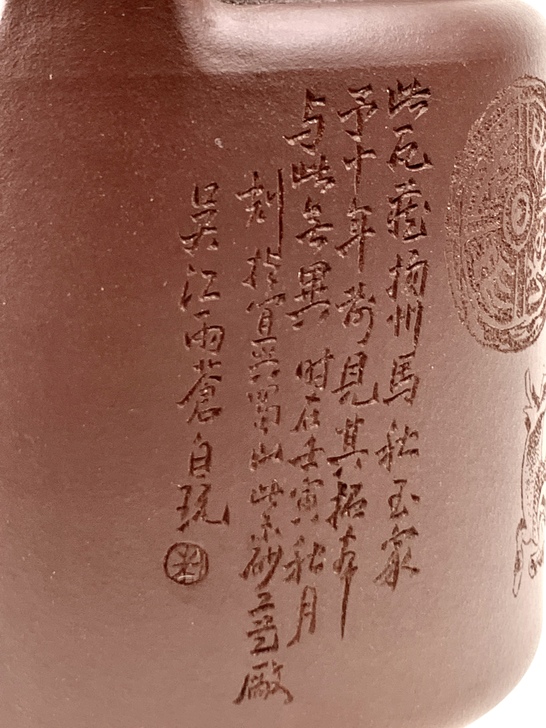 此瓦藏扬州馬秋玉家
予十年前見其拓本
与此無異 时在壬寅秋月
刻於宜興蜀山紫砂工藝廠
吴江雨蒼自玩